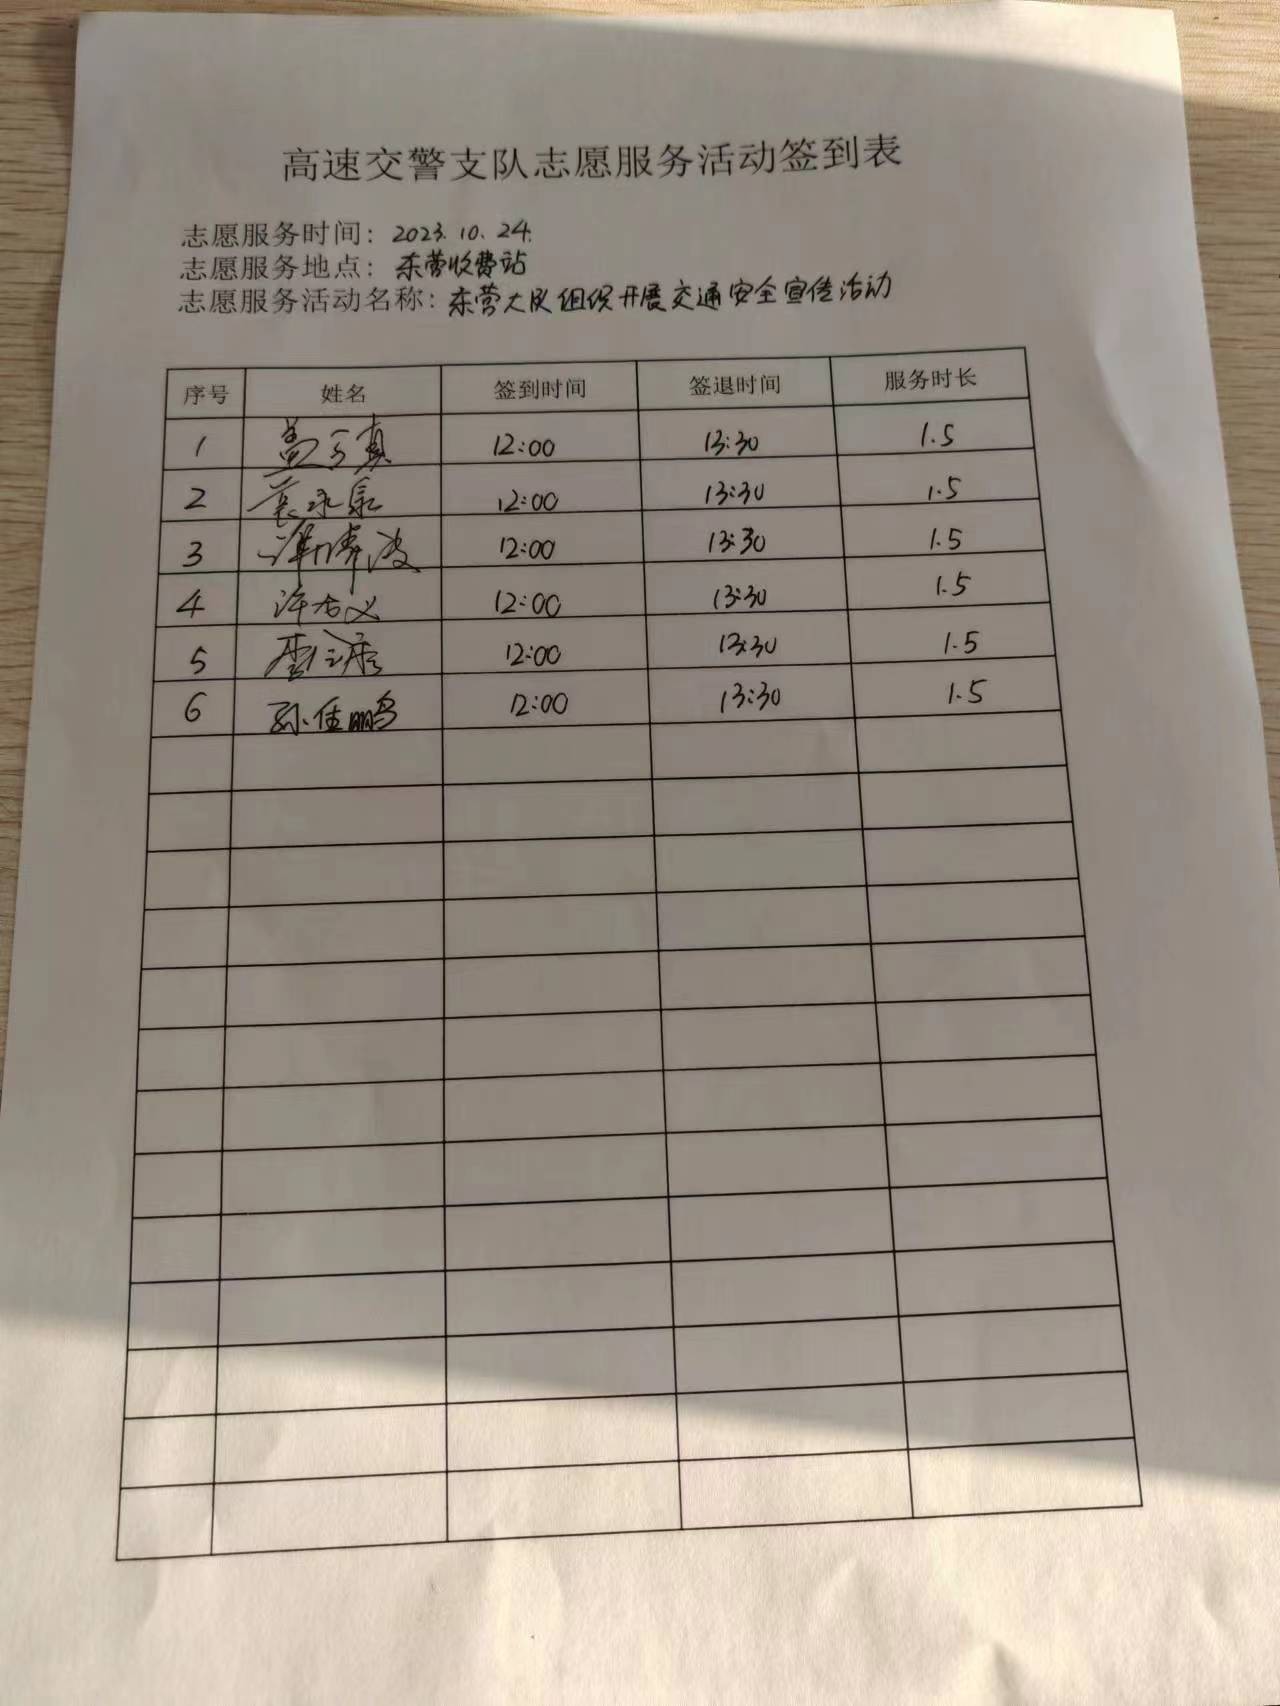 高速交警支队志愿服务活动签到表
志愿服务时间：2023.10.24.
志愿服务地点：东营收费站
志愿服务活动名称：东营大队组织开展交通安全宣传活动
序号 姓名 签到时间 签退时间 服务时长
1 12:00 13:30 1.5
2 12:00 13:30 1.5
3 12:00 13:30 1.5
4 12:00 13:30 1.5
5 12:00 13:30 1.5
6 孙佳鹏 12:00 13:30 1.5